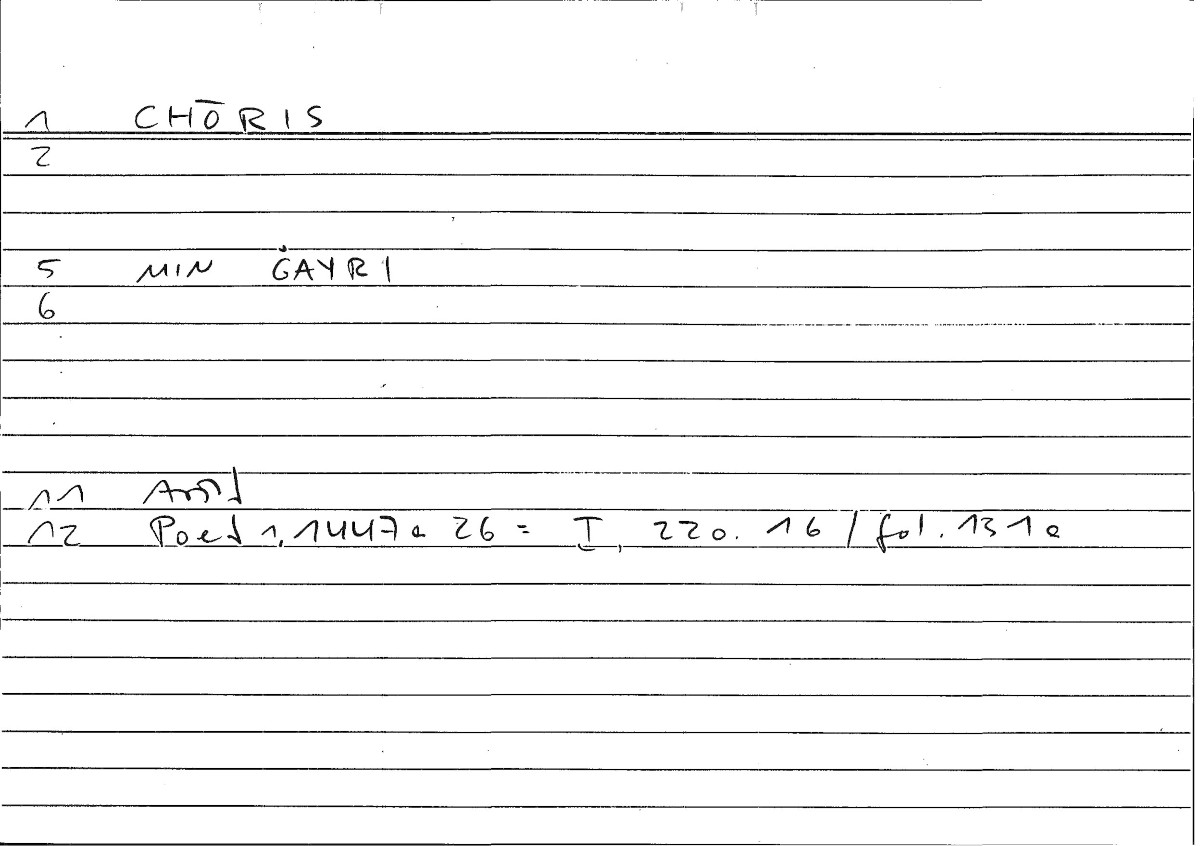 1 CHŌRIS
2
5 MIN ĠAYRI
6
11 Arist
12 Poet 1, 1447a 26 = I, 220.16 / fol. 131a